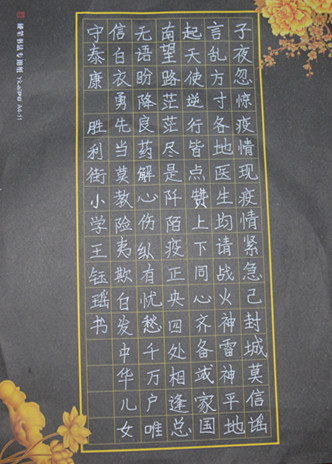 子夜忽惊疫情现疫情紧急己封城莫信谣
言乱方寸各地医生均请战火神雷神平地
起天使逆行皆点赞上下同心齐备域家国
南望路茫茫尽是阡陌疫正央四处相逢总
无语盼降良药解心伤纵有忧愁千万户唯
信白衣勇先当莫教险夷欺白发 中华儿女
守泰康 胜利街小学王钰瑶书